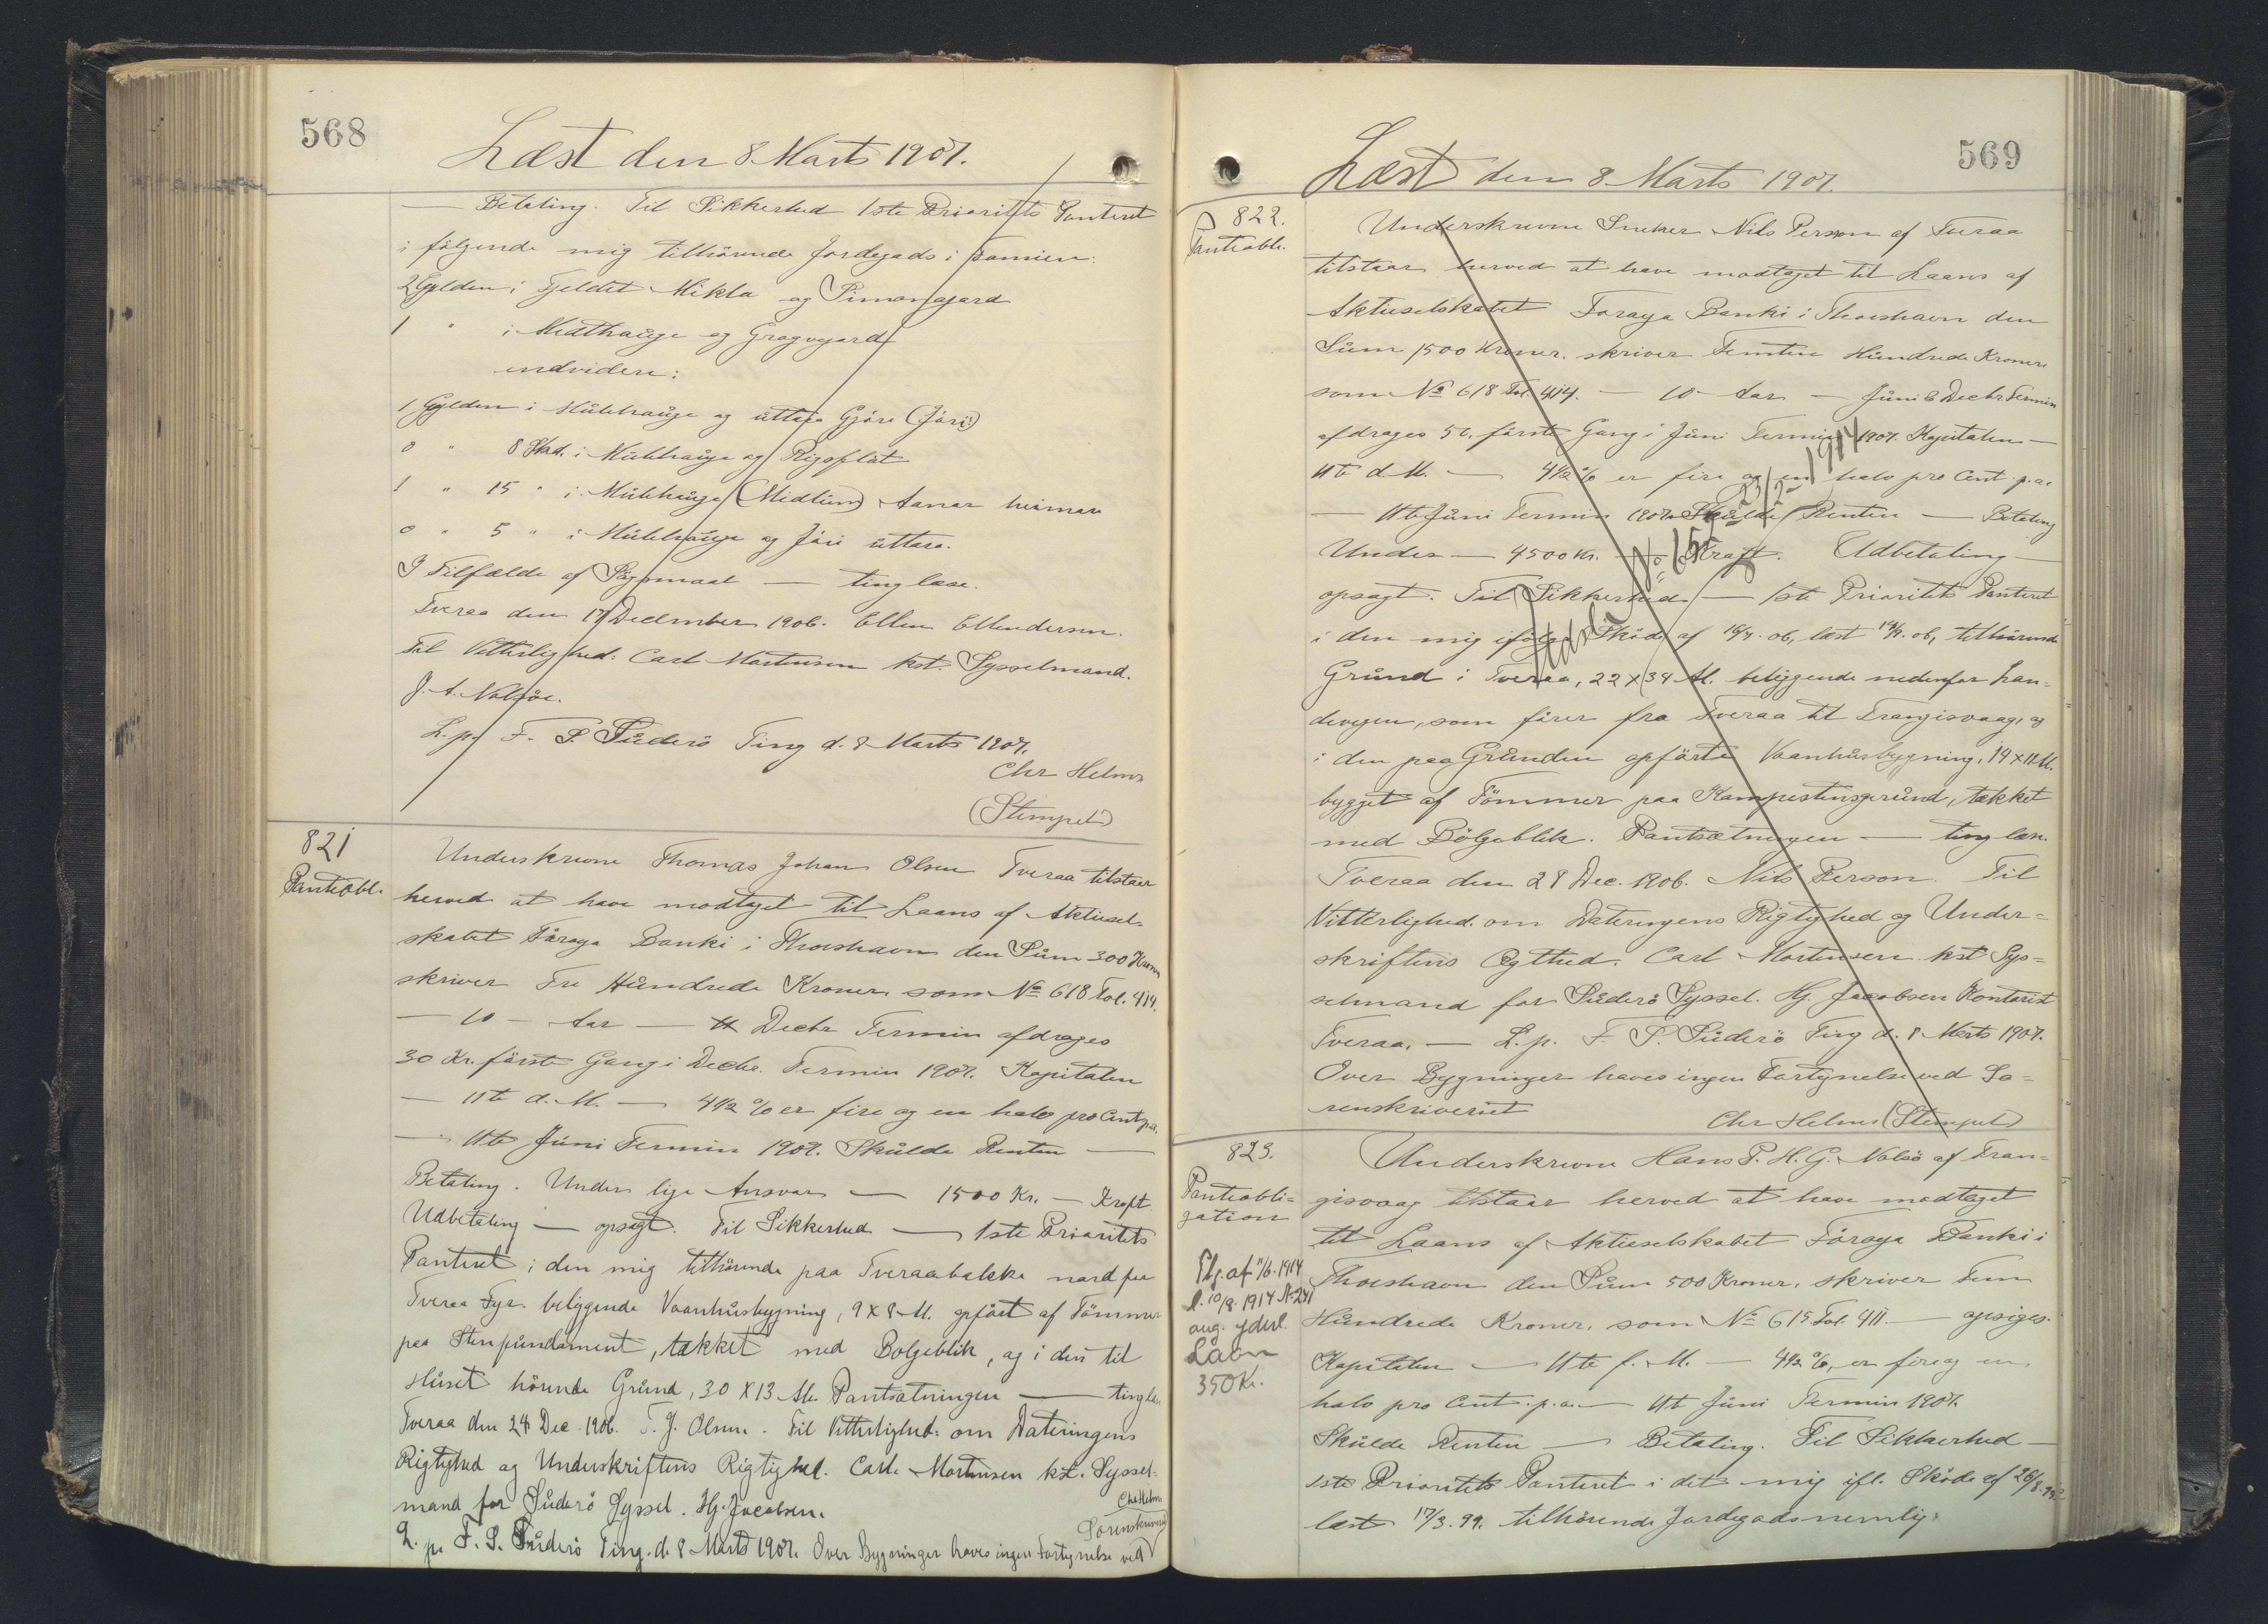 568
Læst den 8 Marts 1907.
— Betaling. Til Sikkerhed 1ste Prioritets Panteret
i følgende mig tilhörende Jordegods i Famien:
2 Gylden i Fjeldet Mikla og Simonagard
1 " i Midthauge og Gragvgard
endvidere:
1 Gylden i Mülehaüge og üttara Gjöre (Jóri)
0 " 8 Skd. i Mülehaüge og Rigsflöt
1 " 15 " i Mülehaüge (Midlüm) Aanar heiman
0 " 5 " i Mülehaüge og Jóri üttara.
I Tilfælde af Søgsmaal — tinglæse.
Tveraa den 17 December 1906. Ellen Ellendersen.
Til Vitterlighed: Carl Mortensen kst. Sysselmand.
J. A. Nolsöe.
L. p. F. S. Süderö Ting d. 8 Marts 1907.
Chr Helms
(Stempel)
821
Panteobl.
Underskrevne Thomas Johan Olsen Tveraa tilstaar
herved at have modtaget til Laans af Aktiesel-
skabet Föroya Banki i Thorshavn den Süm 300 Kroner
skriver Tre Hündrede Kroner, som No 618 Fol. 414.
— 10 — Aar — 11 Decbr Termin afdrages
30 Kr. förste Gang i Decbr. Termin 1907. Kapitalen
— 11te d. M. — 4 1/2 % er fire og en halv pro Cent p.a.
— 11te Jüni Termin 1907. Skülde Renten —
Betaling. Under lige Ansvar — 1500 Kr. — Kraft.
Udbetaling — opsagt. Til Sikkerhed — 1ste Prioritets
Panteret i den mig tilhörende paa Tveraabakke nord for
Tveraa Fyr. beliggende Vaanhüsbygning, 9 X 8 Al. opfört af Tömmer
paa Stenfündament, tækket med Bolgeblik, og i den til
Hüset hörende Gründ, 30 X 13 Al. Pantsætningen — tinglæs
Tveraa den 24 Dec. 1906. T. J. Olsen. Til Vitterlighed: om Dateringens
Rigtighed og Underskriftens Rigtighed. Carl Mortensen kst. Syssel-
mand for Süderö Syssel. Hj. Jacobsen.
Chr Helms
L. p. F. S. Süderö Ting. d. 8 Marts 1907. Over Bygninger haves ingen Fortegnelse ved
Sorenskriveriet
569
Læst den 8 Marts 1907.
822.
Panteobl.
Underskrevne Snedker Nils Person af Tveraa
tilstaar herved at have modtaget til Laans af
Aktieselskabet Foroya Banki i Thorshavn den
Süm 1500 Kroner, skriver Femten Hündrede Kroner
som No 618 Fol. 414. — 10 — Aar — Jüni & Decbr Termin
afdrages 50, förste Gang i Jüni Termin 1907. Kapitalen —
11te d. M. — 4 1/2 % er fire og en halv pro Cent p.a.
— 11te Jüni Termin 1907. Skülde Renten — Betaling
Under — 4500 Kr. — Kraft. Udbetaling —
opsagt. Til Sikkerhed — 1ste Prioritets Panteret
i den mig ifölge Sköde af 16/7. 06, læst 19/7. 06, tilhörende
Gründ i Tveraa, 22 X 39 Al. beliggende nedenfor Lan-
devejen, som förer fra Tveraa til Trangisvaag, og
i den paa Gründen opförte Vaanhüsbygning, 14 X 11 Al.
bygget af Tömmer paa Kampestensgründ, tækket
med Bölgeblik. Pantsætningen — tinglæse.
Tveraa den 28 Dec. 1906. Nils Person. Til
Vitterlighed om Dateringens Rigtighed og Under=
skriftens Ægthed. Carl Mortensen kst Sys=
selmand for Süderö Syssel. Hj. Jacobsen Kontorist
Tveraa. — L. p. F. S. Süderö Ting d. 8 Marts 1907.
Over Bygninger haves ingen Fortegnelse ved So=
renskriveriet
Chr Helms (Stempel)
823.
Panteobli=
gation
Underskrevne Hans P. H. G. Nolsö af Tran=
gisvaag tilstaar herved at have modtaget
til Laans af Aktieselskabet Föroya Banki i
Thorshavn den Süm 500 Kroner, skriver Fem
Hündrede Kroner, som No 615 Fol. 411 — opsiges.
Kapitalen — 11te f. M. — 4 1/2 %, er fire og en
halv pro Cent. p. a. — 11te Jüni Termin 1907.
Skülde Renten — Betaling. Til Sikkerhed —
1ste Prioritets Panteret i det mig ifl. Sköde af 26/8. 98
læst 17/3. 99. tilhörende Jordegods nemlig:
Ptg. af 11/6. 1914
l. 10/8. 1914 No 241
ang. yderl.
Laan
350 Kr.